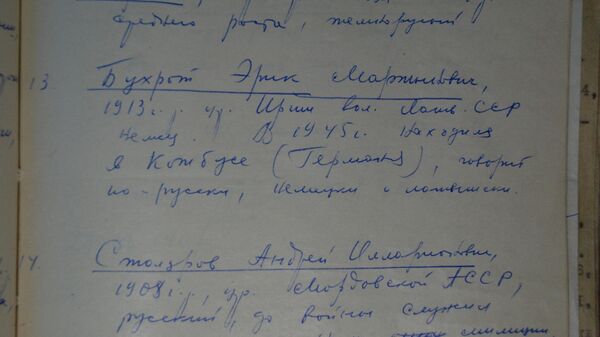 среднего роста, темнорусый
13 Бухрот Эрик Мартынович,
1913 г., ур. Ирши вол. Латв. ССР
Немец. В 1945 г. находился
в Котбусе (Германия), говорит
по-русски, немецки и латышски.
14. Столяров Андрей Илларионович,
1908 г., ур. Мордовской АССР,
русский, до войны служил
милиции